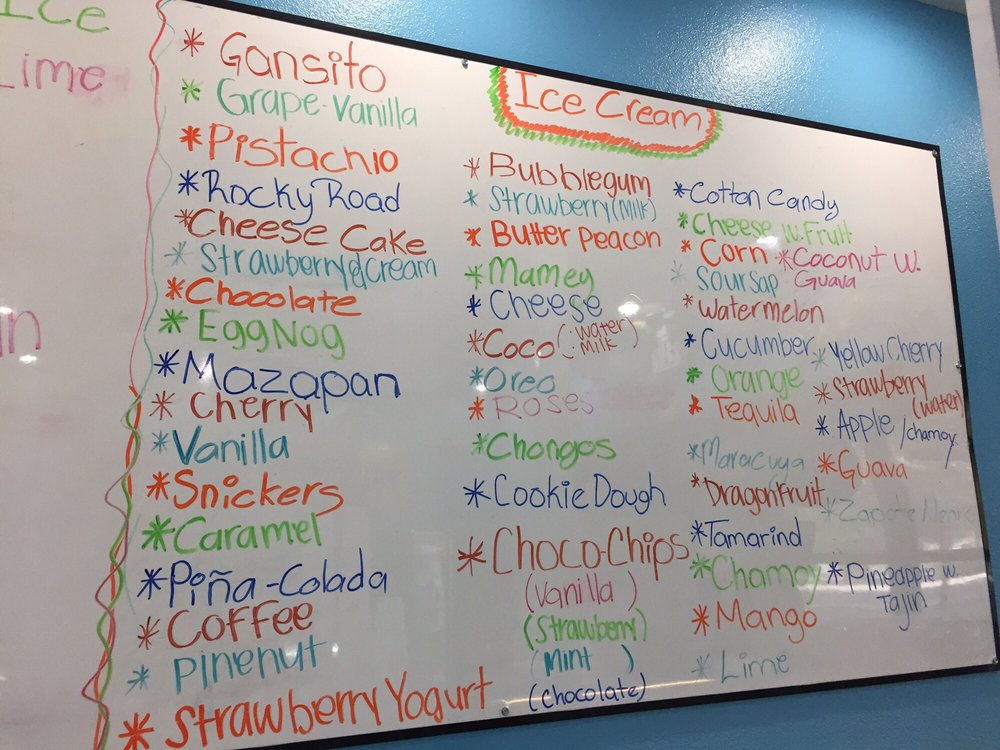 Ice
Lime
Ice Cream
* Gansito
* Grape-Vanilla
* Pistachio
* Rocky Road
* Cheese Cake
* Strawberry & Cream
* Chocolate
* Egg Nog
* Mazapan
* Cherry
* Vanilla
* Snickers
* Caramel
* Piña-Colada
* Coffee
* Pinenut
* Strawberry Yogurt
* Bubblegum
* Strawberry (Milk)
* Butter Peacon
* Mamey
* Cheese
* Coco (: water
Milk )
* Oreo
* Roses
* Chongos
* Cookie Dough
* Choco-Chips
(Vanilla )
(Strawberry)
(Mint )
(Chocolate)
* Cotton Candy
* Cheese w. Fruit
* Corn
* Soursap
* Watermelon
* Cucumber
* Orange
* Tequila
* Maracuya
* Dragon Fruit
* Tamarind
* Chamoy
* Mango
* Lime
* Coconut W.
Guava
* Yellow Cherry
* Strawberry
(water)
* Apple / chamoy
* Guava
* Zapote
* Pineapple w.
Tajin